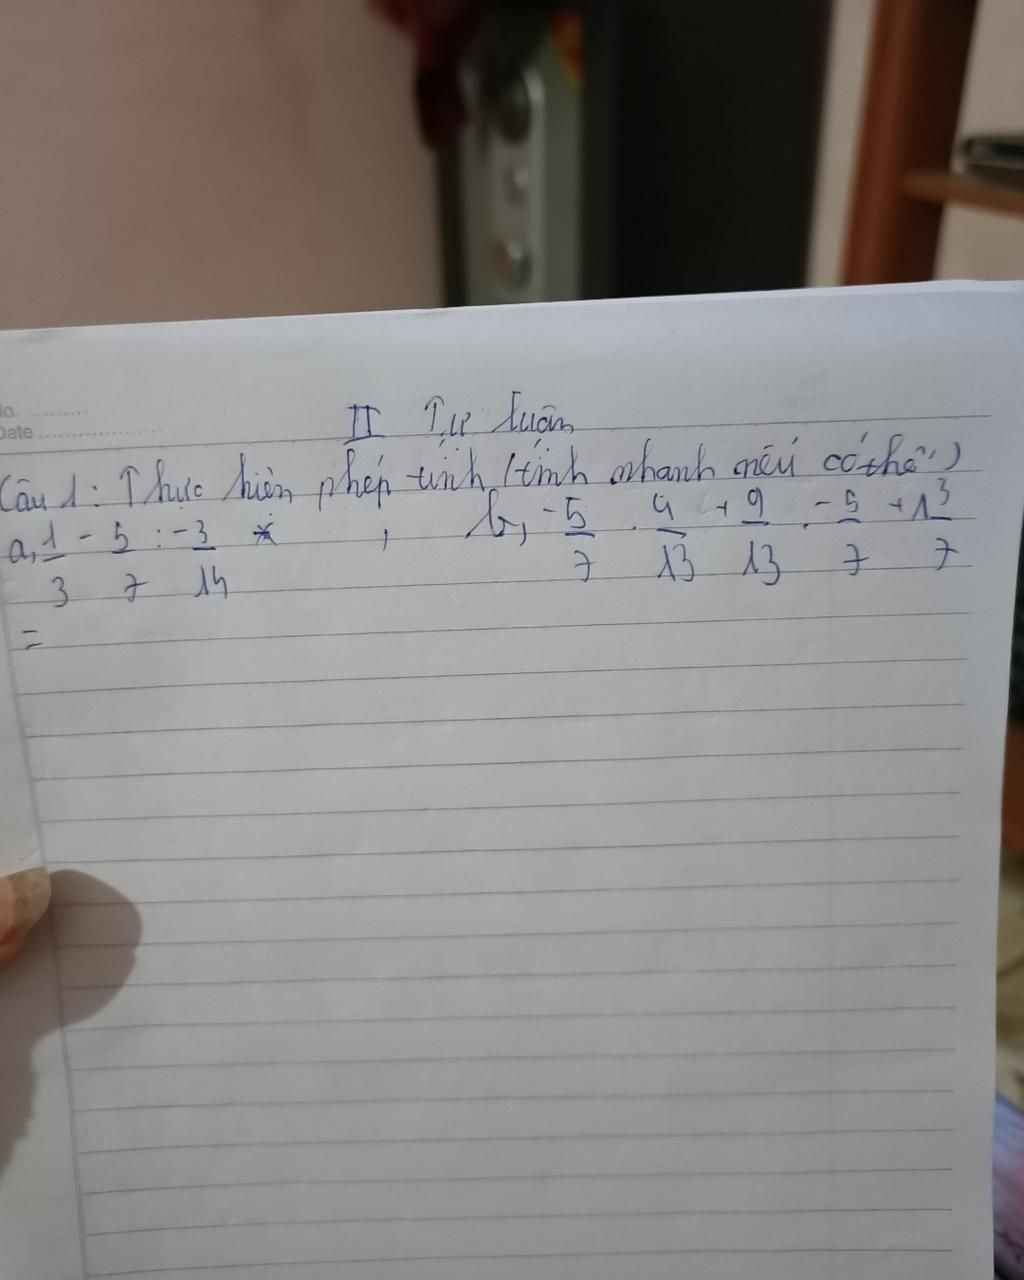 No. .........
Date ..................
II Tự luận
Câu 1: Thực hiện phép tính (tính nhanh nếu có thể)
a, 1/3 - 5/7 : -3/14 , b, -5/7 . 4/13 + 9/13 . -5/7 + 1 3/7
=